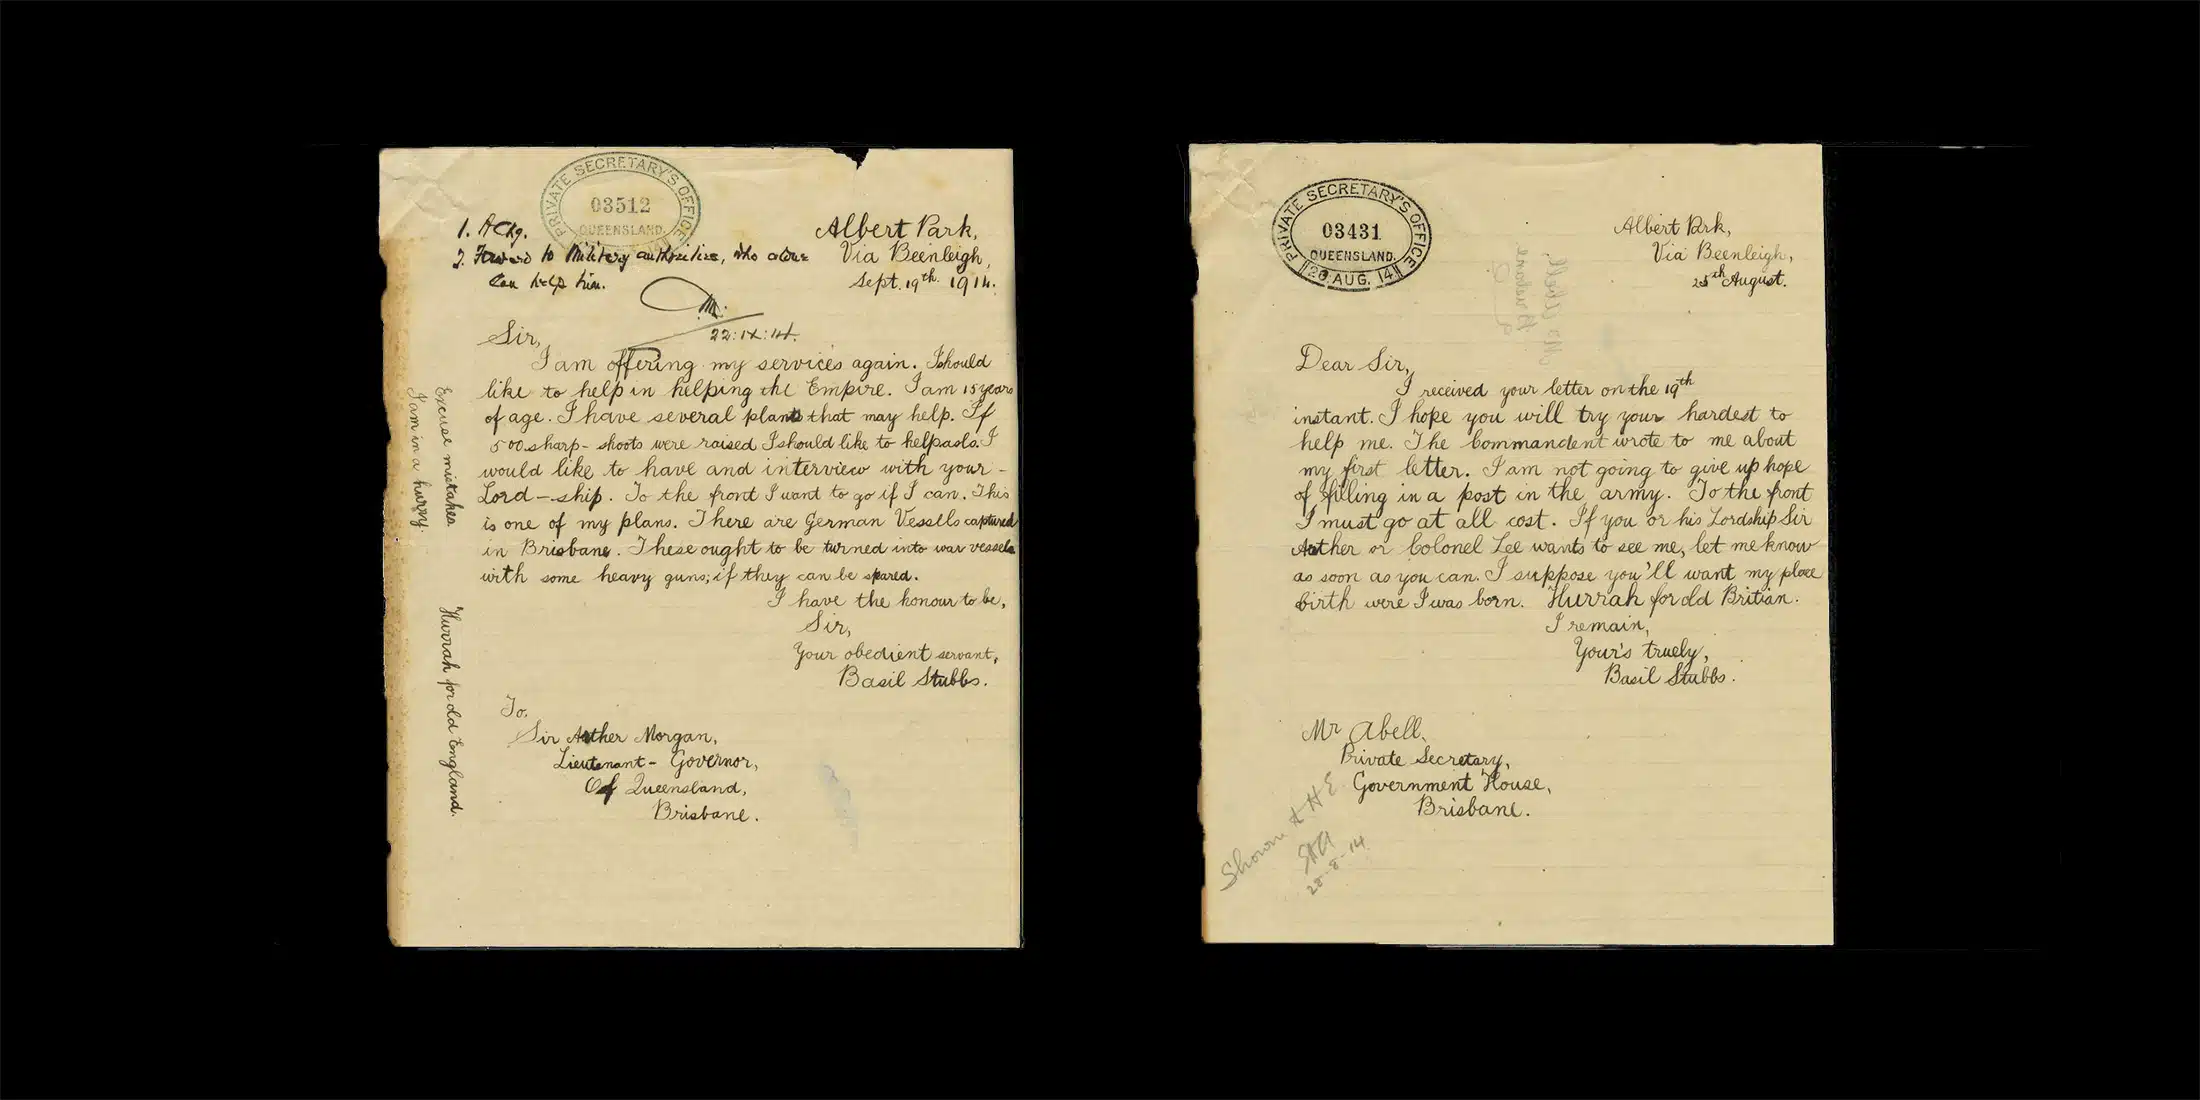 PRIVATE SECRETARY'S OFFICE
03512
QUEENSLAND.
1. Ackg.
2. Forward to Military authorities, who alone
can help him.
M.
22:IX:14.
Albert Park,
Via Beenleigh,
Sept. 19th 1914.
Sir,
I am offering my services again. I should
like to help in helping the Empire. I am 15 years
of age. I have several plans that may help. If
500 sharp-shoots were raised I should like to help aslo. I
would like to have and interview with your-
Lord-ship. To the front I want to go if I can. This
is one of my plans. There are German Vessels captured
in Brisbane. These ought to be turned into war vessels
with some heavy guns; if they can be spared.
I have the honour to be,
Sir,
Your obedient servant,
Basil Stubbs.
To,
Sir Arther Morgan,
Lieutenant-Governor,
Of Queensland,
Brisbane.
Excuse mistakes
I am in a hurry.
Hurrah for old England.
PRIVATE SECRETARY'S OFFICE
03431
QUEENSLAND.
26 AUG. 14
Albert Prk,
Via Beenleigh,
25th August.
Dear Sir,
I received your letter on the 19th
instant. I hope you will try your hardest to
help me. The Commandent wrote to me about
my first letter. I am not going to give up hope
of filling in a post in the army. To the front
I must go at all cost. If you or his Lordship Sir
Arther or Colonel Lee wants to see me, let me know
as soon as you can. I suppose you'll want my place
birth were I was born. Hurrah for old Britian.
I remain,
Your's truely,
Basil Stubbs.
Mr Abell,
Private Secretary,
Government House,
Brisbane.
Shown to H E
28-8-14